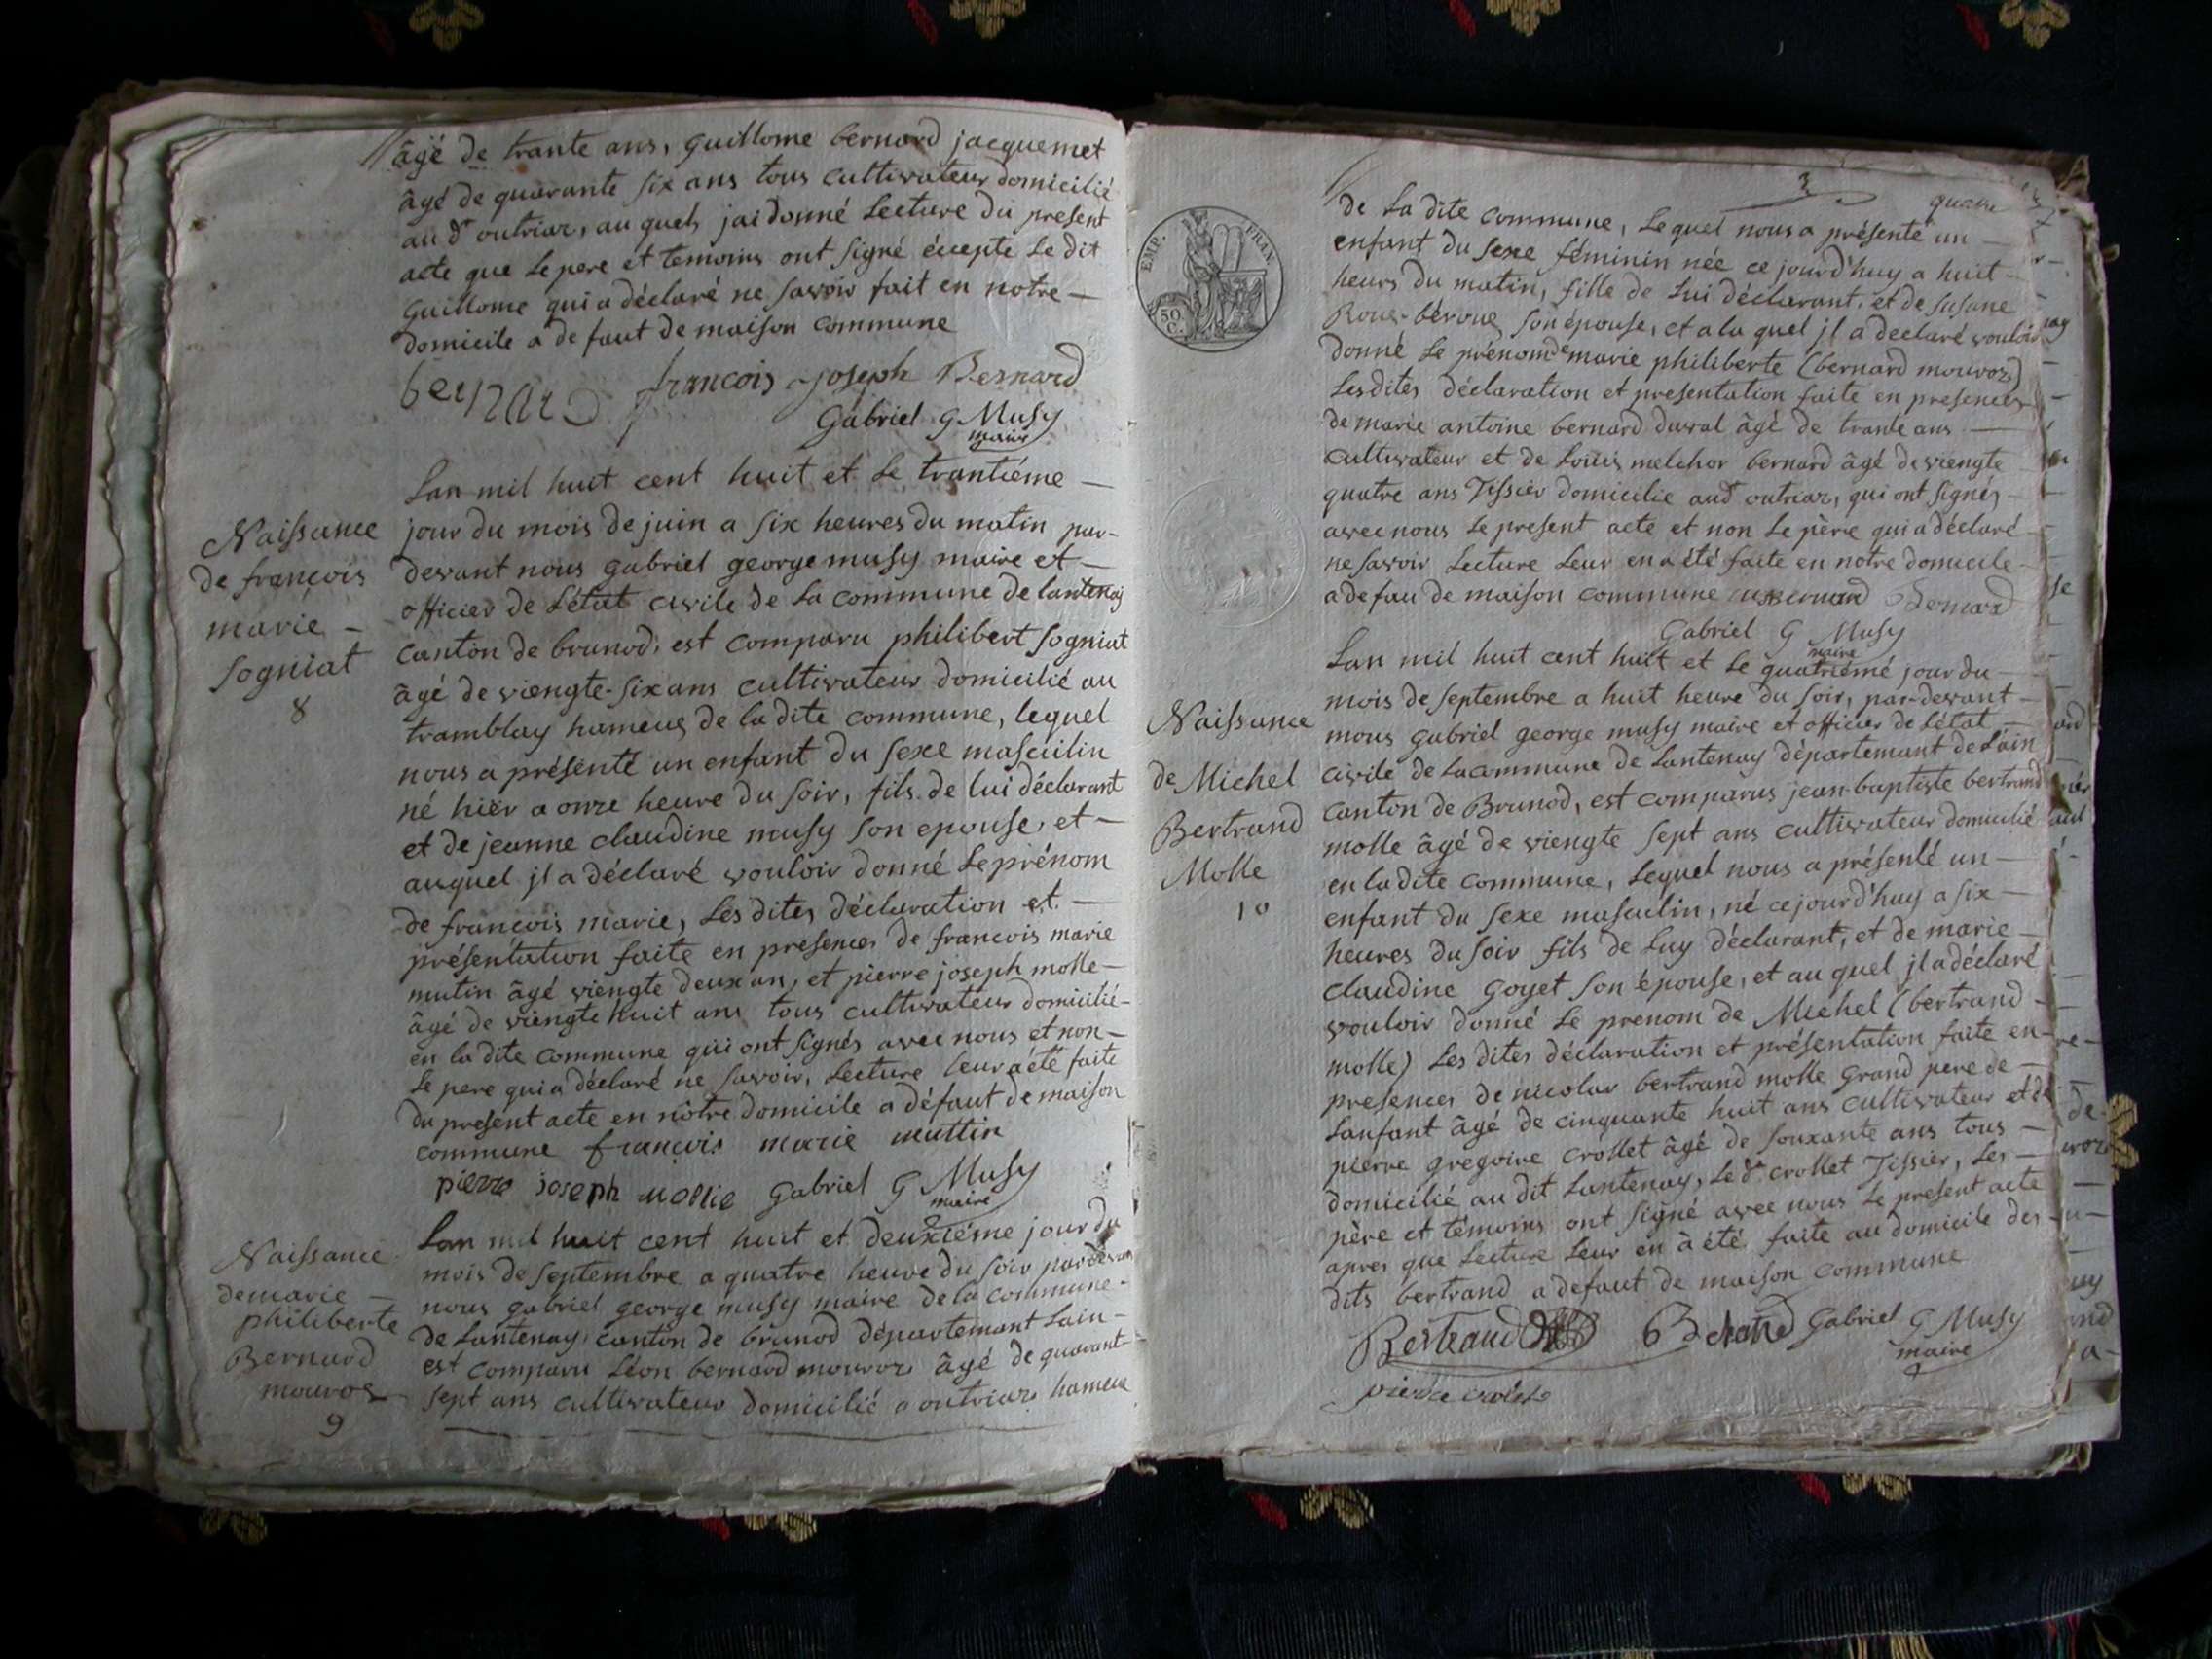 âgé de trante ans, guillome bernard jacquemet
âgé de quarante six ans tous cultivateur domicilié
au dt outriaz, au quels jai donné Lecture du present
acte que Le pere et temoins ont signé écepte Le dit
guillome qui a déclaré ne savoir fait en notre —
domicile a de faut de maison commune
bernard françois joseph Bernard
Gabriel G Musy
maire
Naissance
de françois
marie —
sogniat
8
Lan mil huit cent huit et Le trantiéme —
jour du mois de juin a six heures du matin par-
devant nous gabriel george musy maire et —
officier de L'état civile de La commune de lantenay
canton de brunod, est comparu philibert sogniat
âgé de viengte-six ans cultivateur domicilié au
tramblay hameus de la dite commune, lequel
nous a présenté un enfant du sexe masculin
né hièr a onze heure du soir, fils de lui déclarant
et de jeanne claudine musy son epouse, et —
auquel jl a déclaré vouloir donné Le prénom
de françois marie, Les dites déclaration et —
présentation faite en presences de françois marie
mutin âgé viengte deux ans, et pierre joseph molle —
âgé de viengte huit ans tous cultivateur domicilié —
en la dite commune qui ont signés avec nous et non —
Le pere qui a déclaré ne savoir, Lecture leur a été faite
du present acte en nôtre domicile a défaut de maison
commune françois marie muttin
pierre joseph mollie Gabriel G Musy
maire
Naissance
de marie —
philiberte
Bernard
mouvoz
9
Lan mil huit cent huit et deuxiéme jour du
mois de septembre a quatre heure du soir par devan
nous gabriel george musy maire de la commune -
de Lantenay, canton de brunod départemant Lain —
est comparu Léon bernard mouvoz âgé de quarant-
sept ans cultivateur domicilié a outriaz hameu
3
EMP. FRAN.
50
C.
de La dite commune, Le quel nous a présenté un —
enfant du sexe féminin née ce jourd'huy a huit —
heurs du matin, fille de Lui déclarant, et de susane
son épouse, et a la quel jl a déclaré vouloir
donné Le prénom de marie philiberte (bernard mouvoz)
Lesdites déclaration et presentation faite en presences
de marie antoine bernard duval âgé de trante ans —
cultivateur et de Louis melchor bernard âgé de viengte
quatre ans Tissier domicilie aud outriaz, qui ont signés —
avec nous Le present acte et non Le père qui a déclaré
ne savoir Lecture Leur en a été faite en notre domicile —
a defau de maison commune Bernard
Gabriel G Musy
maire
Naissance
de Michel
Bertrand
Molle
10
Lan mil huit cent huit et Le quatriémé jour du —
mois de septembre a huit heure du soir, par-devant —
nous gabriel george musy maire et officier de L'état —
civile de La commune de Lantenay départemant de L'ain
canton de Brunod, est comparus jean-baptiste bertrand
molle âgé de viengte sept ans cultivateur domicilié
en la dite commune, Lequel nous a présenté un —
enfant du sexe masculin, né ce jourd'huy a six —
heures du soir fils de Luy déclarant, et de marie —
claudine goyet son épouse, et au quel jl a déclaré
vouloir donné Le prenom de Michel (bertrand —
molle) Les dites déclaration et présentation faite en —
presences de nicolas bertrand molle grand pere de —
Lanfant âgé de cinquante huit ans cultivateur et de
pierre gregoire crollet âgé de souxante ans tous —
domicilié au dit Lantenay, Le dt crollet Tissier, Les —
père et témoins ont signé avec nous Le present acte
apres que Lecture Leur en à été faite au domicile des
dits bertrand a defaut de maison commune
Bertrand Gabriel G Musy
maire